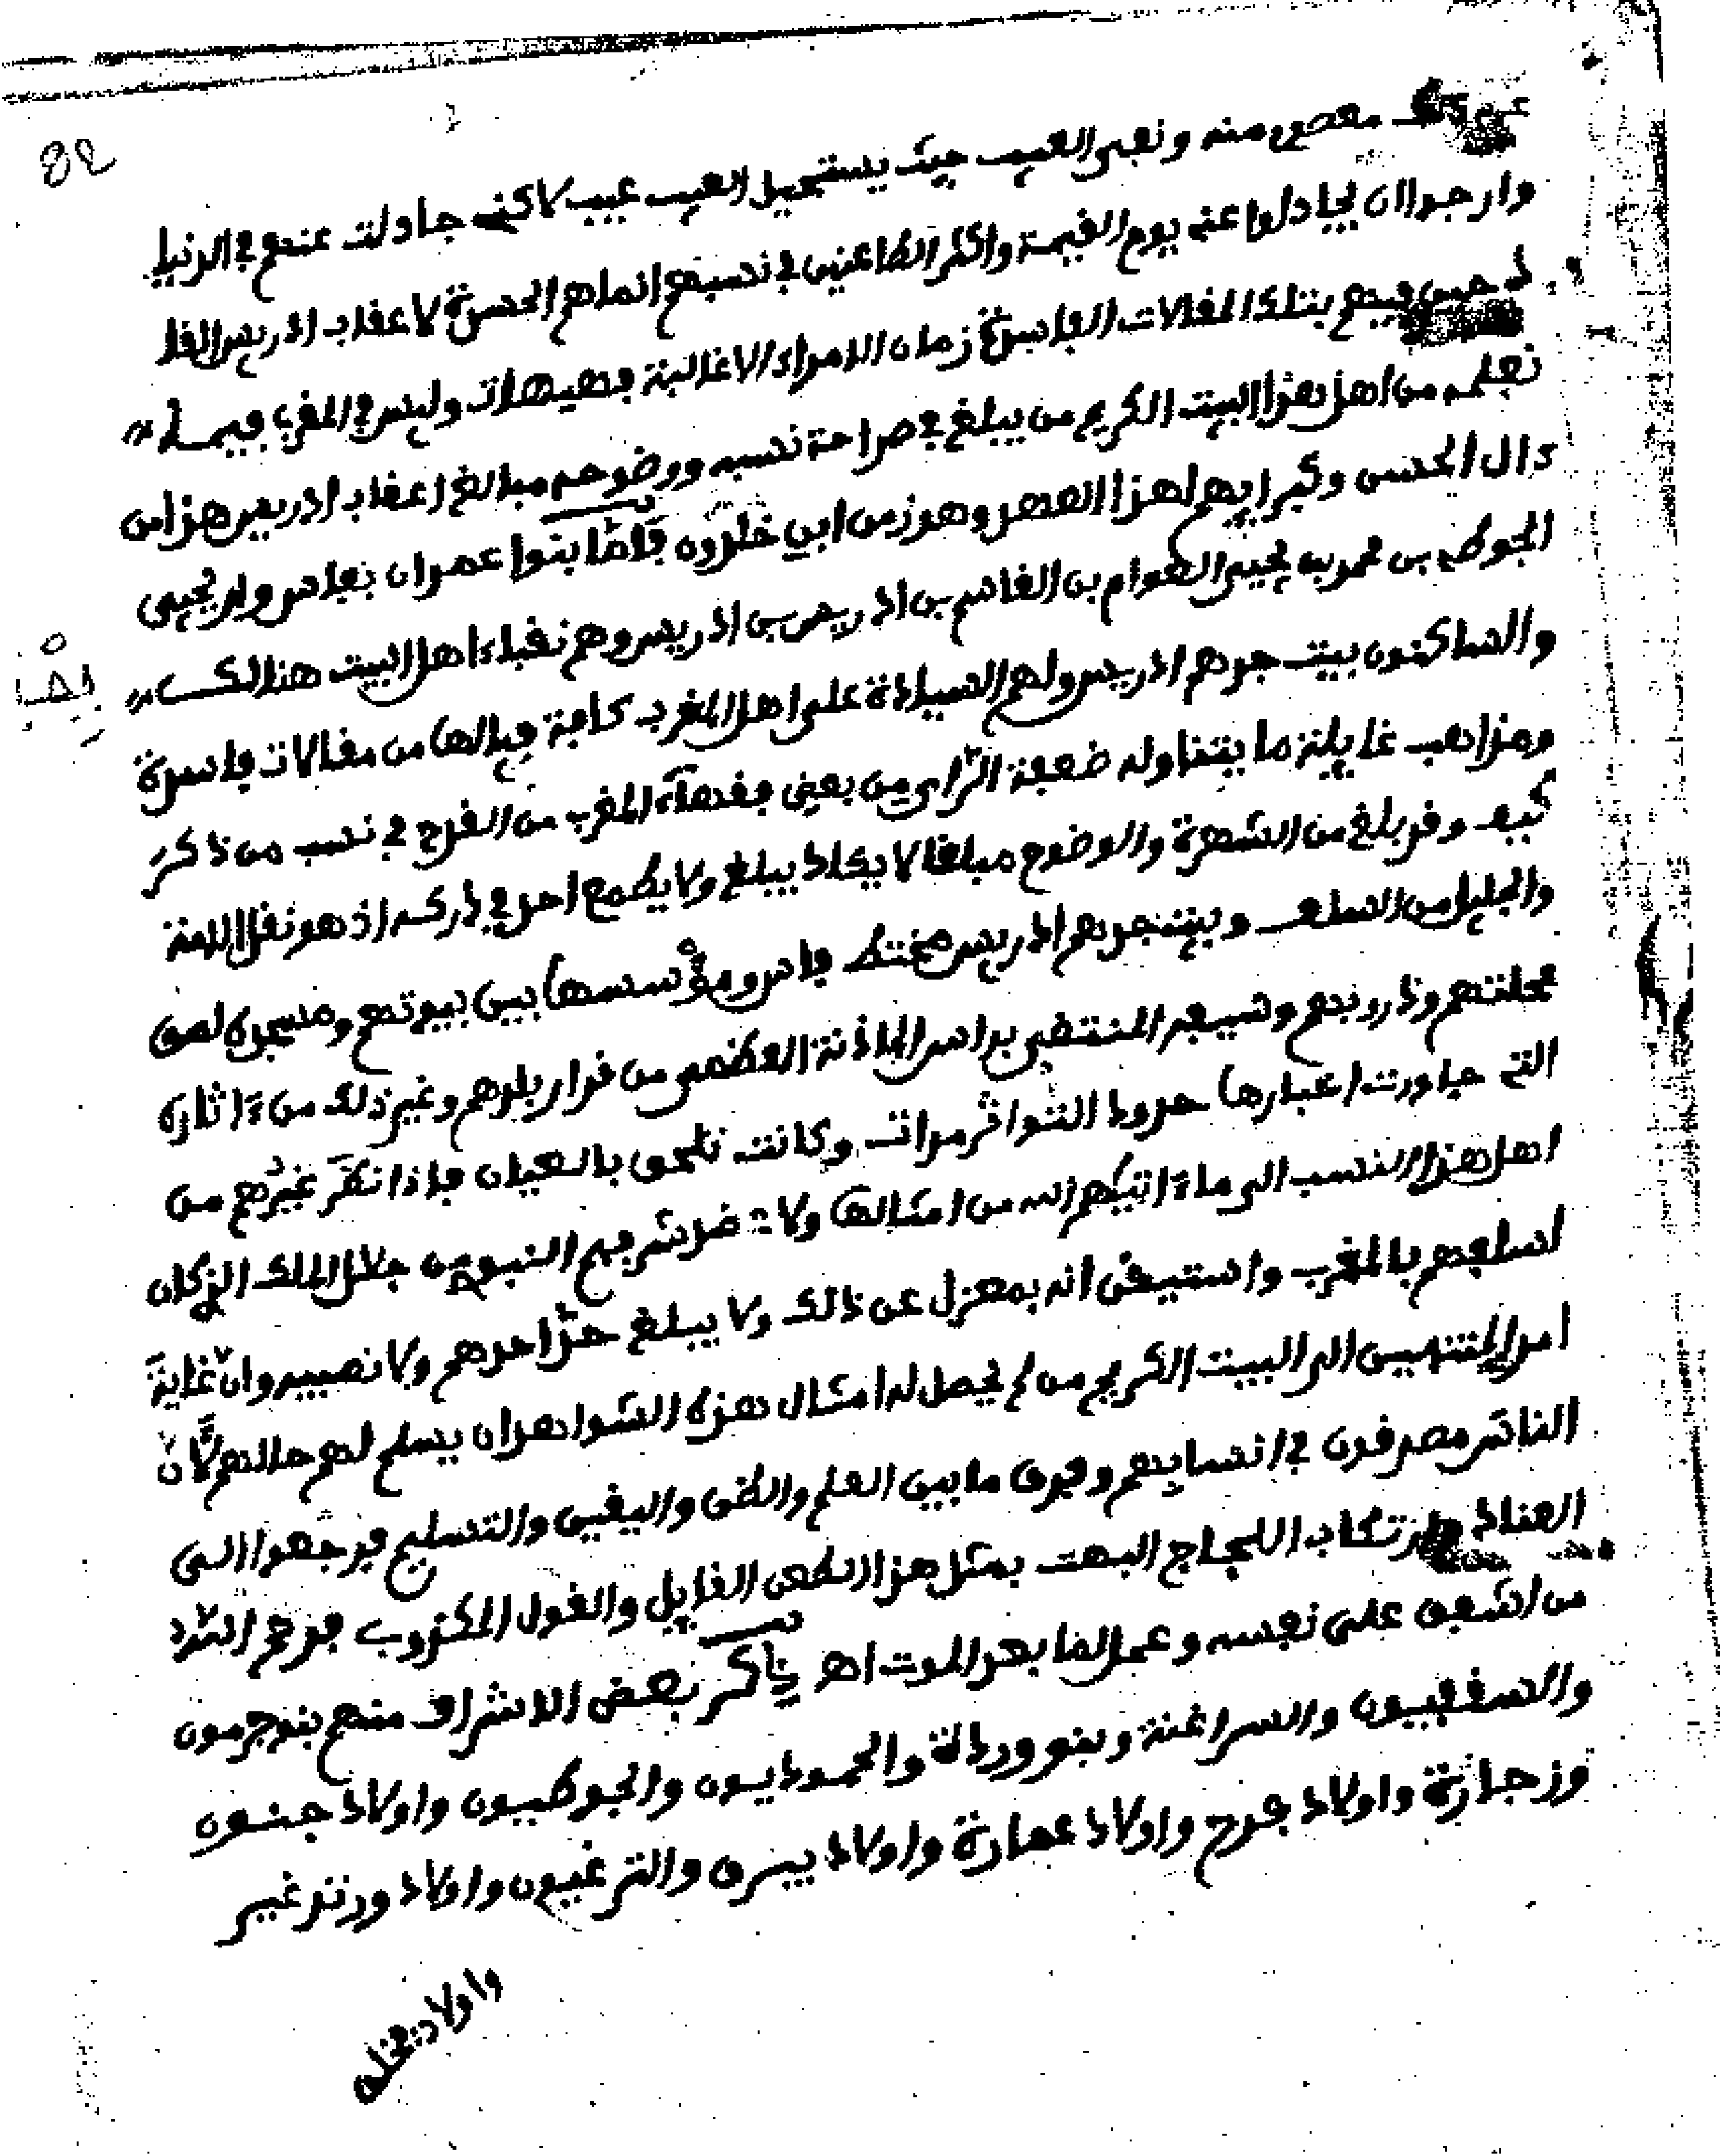 82
عن ذلك معصوم منه ونفي العيب حيث يستحيل العيب عيب لاكني جادلت عنهم في الدنيا
وارجوا ان يجادلوا عني يوم القيمة واكثر الطاعنين في نسبهم انما هم الحسدة لاعقاب ادريس القا
دحين فيهم بتلك المقالات الفاسدة زمان الامراء الاغالبة فهيهات وليس في المغرب فيما
نعلم من اهل هذا البيت الكريم من يبلغ في صراحة نسبه ووضوحه مبالغ اعقاب ادريس هذا من
ءال الحسن وكبراءهم لهذا العهد وهو زمن ابي خلدون قلت بنوا عمران بفاس ولد يحيى
الجوطي بن محمد بن يحيى العوام بن القاسم بن ادريس بن ادريس وهم نقباء اهل البيت هنالك
والساكنون ببيت جدهم ادريس ولهم السيادة على اهل المغرب كافة فيالها من مقالات فاسدة
ومذاهب غايلة ما يتناوله ضعفة الراي من بعض فقهاء المغرب من القدح في نسب من ذكر
كيف وقد بلغ من الشهرة والوضوح مبلغا لا يكاد يبلغ ولا يطمع احد في دركه اذ هو نقل الامة
والجيل من السلف وبيت جدهم ادريس مختط فاس ومؤسسها بين بيوتهم ومسجده لصق
محلتهم ودروبهم وسيفه المنتضى براس الماذنة العظمى من قرار بلدهم وغير ذلك من ءاثاره
التي جاورت اخبارها حدود التواتر مرات وكانت تلحق بالعيان فاذا نظر غيرهم من
اهل هذا النسب الى ما ءاتيهم الله من امثالها ولا عضد شرفهم النبوي من جلال الملك الذي كان
لسلفهم بالمغرب واستيقن انه بمعزل عن ذالك ولا يبلغ مد احدهم ولا نصيبه وان غاية
امر المنتمين الى البيت الكريم من لم يحصل له امثال هذه الشواهد ان يسلم لهم حالهم لان
الناس مصدقون في انسابهم وفرق ما بين العلم والظن واليقين والتسليم فرجعوا الى
العناد وارتكاب اللجاج البهت بمثل هذا الطعن الفايل والقول المكذوب فرحم الله
من اشفق على نفسه وعمل لما بعد الموت اه ذكر بعض الاشراف منهم بنو جرمون
والسقفيون والسراغنة وبنو وردة والحموديون والجوطيون واولاد جنون
وزجارة واولاد فرج واولاد عمارة واولاد بيزى والترغيون واولاد ورنتر غير
واولاد